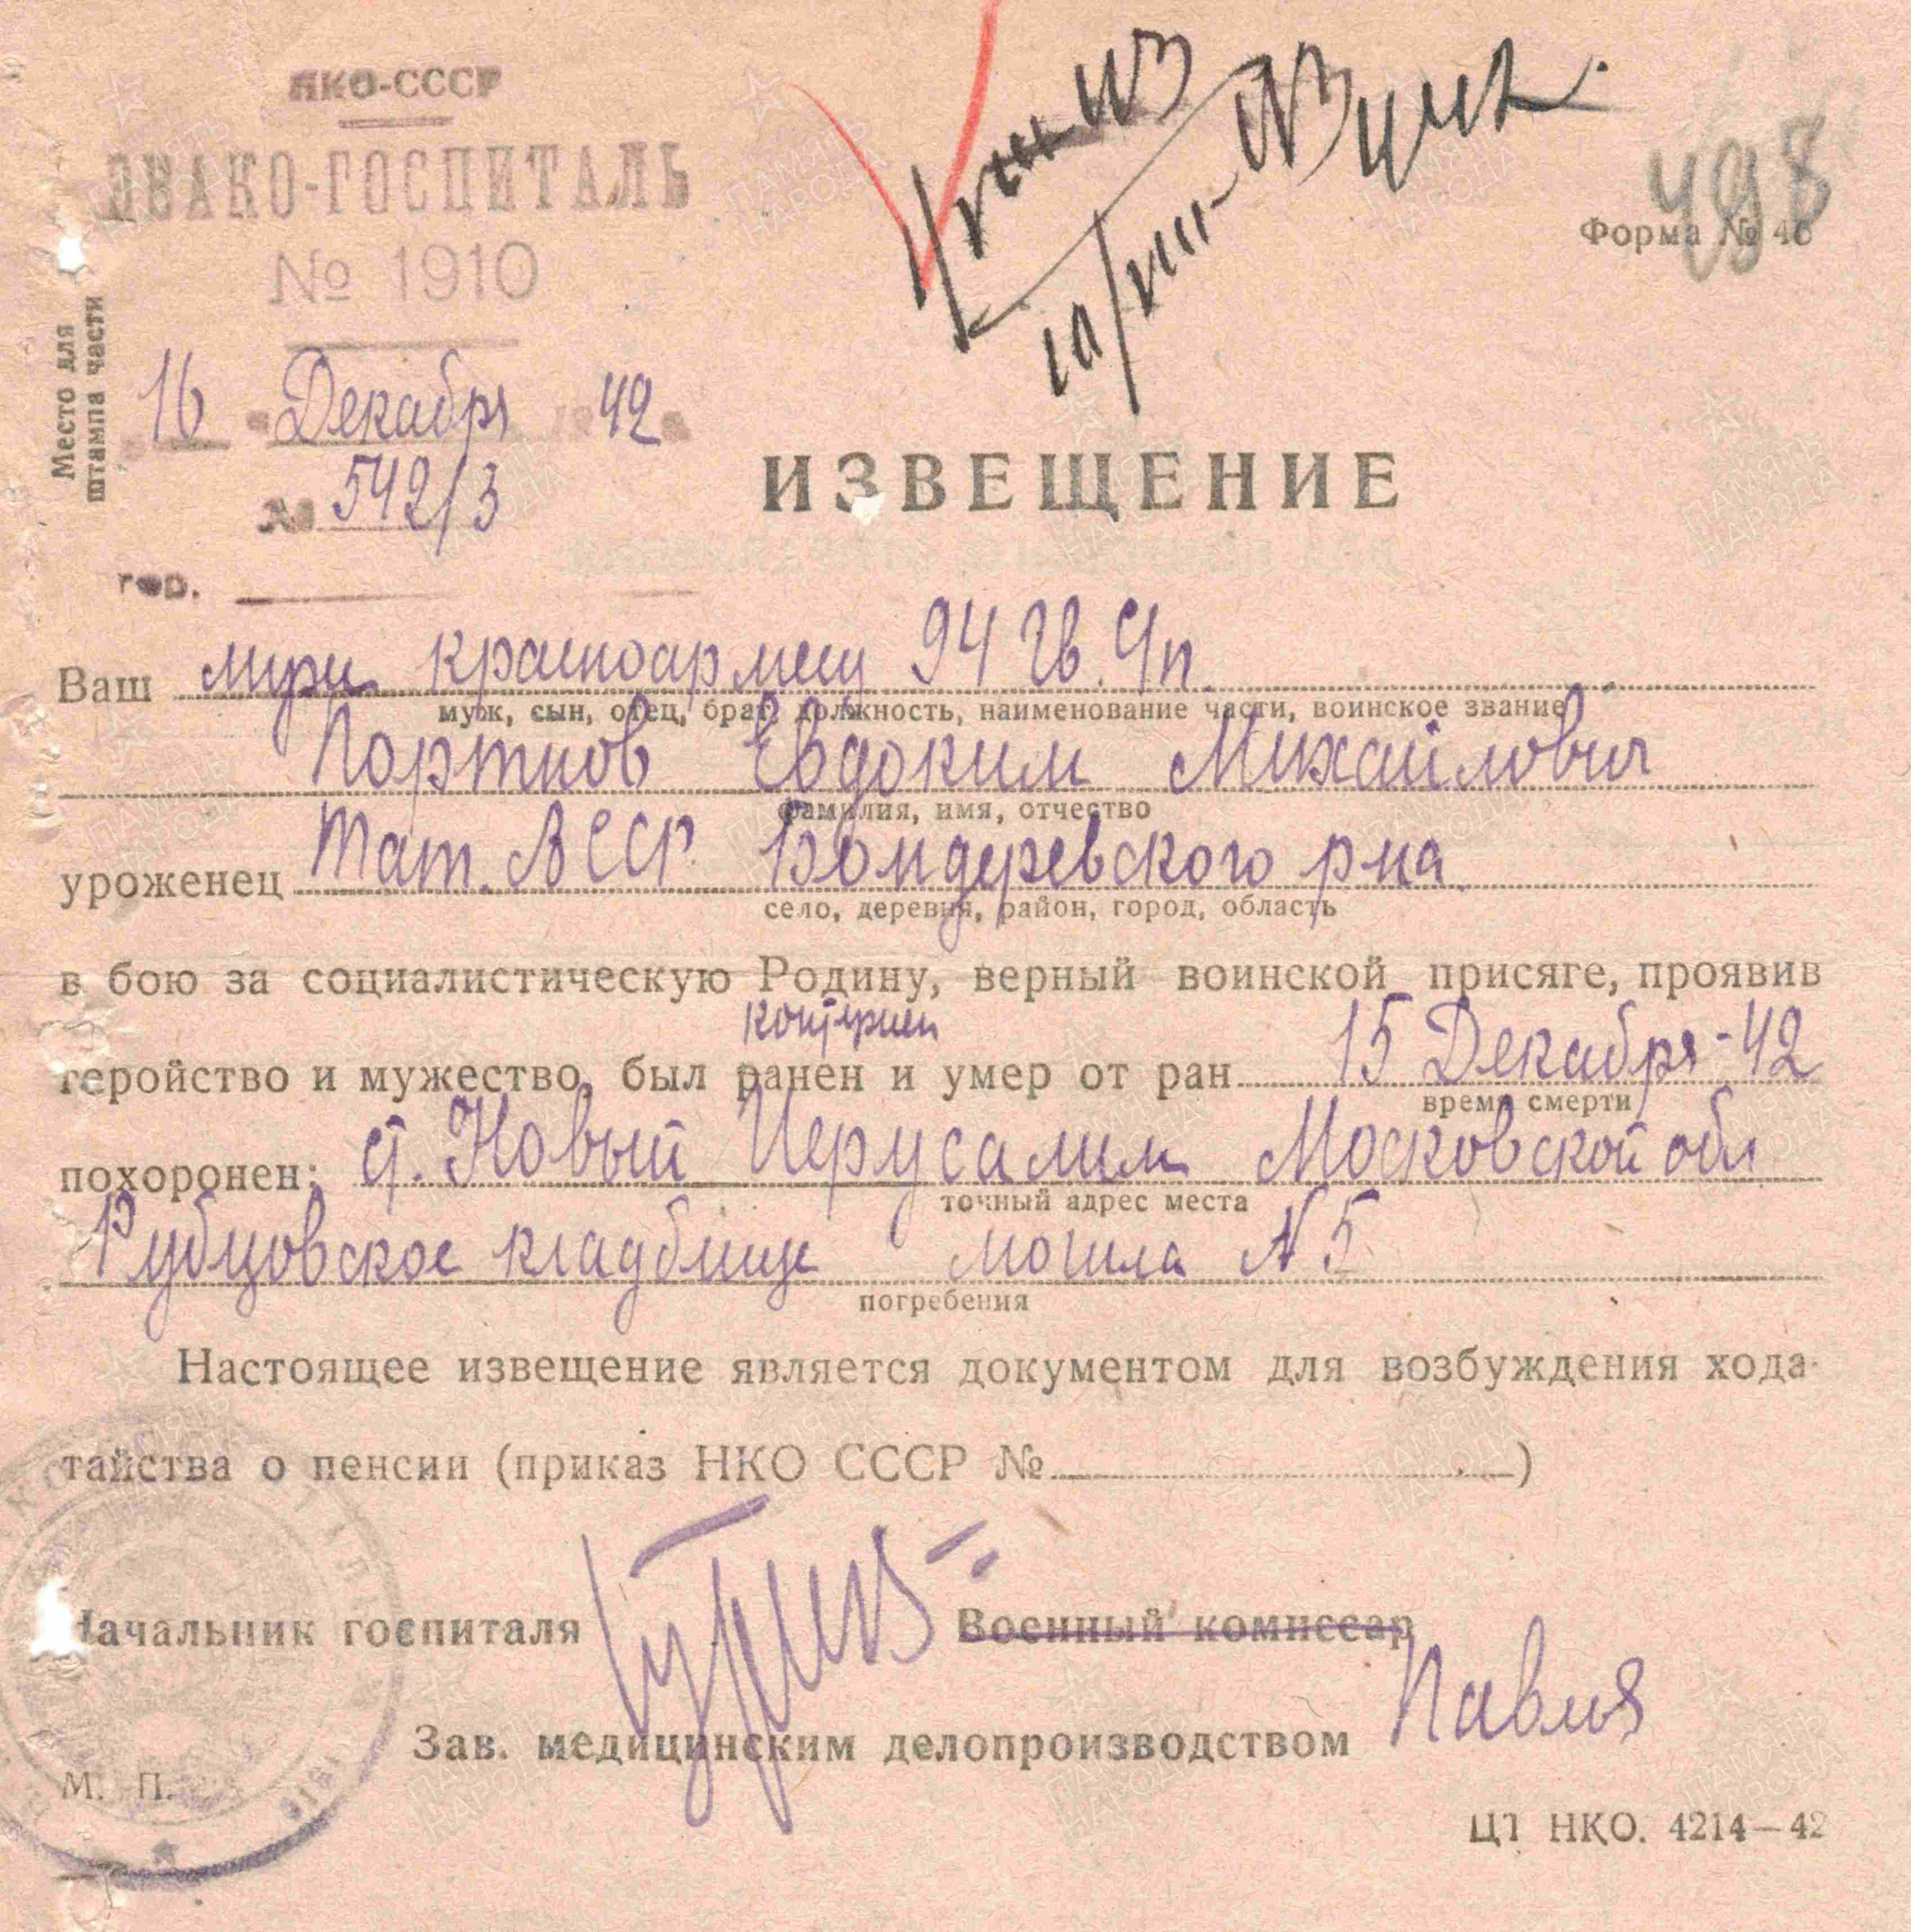 НКО-СССР
ЭВАКО-ГОСПИТАЛЬ
№ 1910
498
Форма № 46
Место для штампа части
16 Декабря 42
№ 542/3
гор.
ИЗВЕЩЕНИЕ
Ваш муж красноармеец 94 Гв. С/п
муж, сын, отец, брат, должность, наименование части, воинское звание
Портнов Евдоким Михайлович
фамилия, имя, отчество
уроженец Тат. АССР Бондюжского р-на
село, деревня, район, город, область
в бою за социалистическую Родину, верный воинской присяге, проявив
контужен
геройство и мужество, был ранен и умер от ран 15 Декабря-42
время смерти
похоронен: ст. Новый Иерусалим Московской обл
точный адрес места
Рубцовское кладбище могила N 5
погребения
Настоящее извещение является документом для возбуждения хода-
тайства о пенсии (приказ НКО СССР № )
Начальник госпиталя Военный комиссар
Зав. медицинским делопроизводством
М. П.
ЦТ НКО. 4214—42